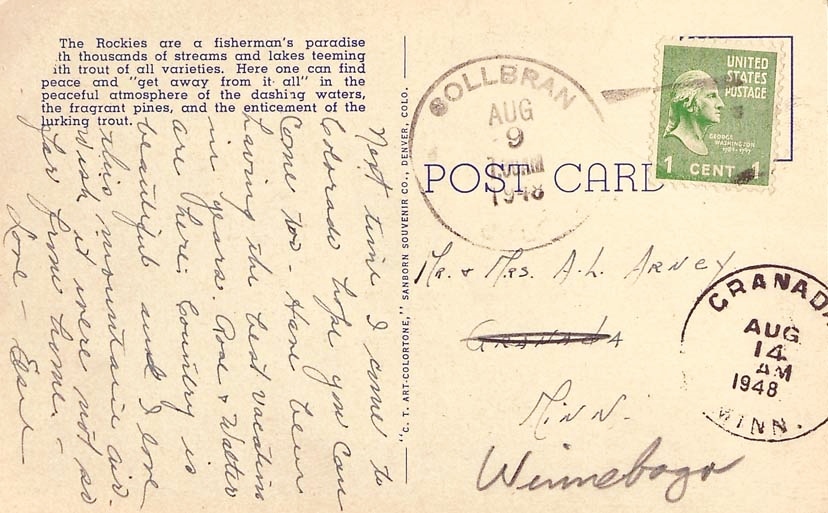 The Rockies are a fisherman's paradise
th thousands of streams and lakes teeming
ith trout of all varieties. Here one can find
peace and "get away from it all" in the
peaceful atmosphere of the dashing waters,
the fragrant pines, and the enticement of the
lurking trout.
Next time I come to
Colorado hope you can
come too - Have been
having the best vacation
in years. Rose & Walter
are here. Country is
beautiful and I love
this mountain air.
Wish it were not so
far from home. -
Love - Elsie
"C. T. ART-COLORTONE," SANBORN SOUVENIR CO., DENVER, COLO.
COLLBRAN
AUG
9
1948
UNITED
STATES
POSTAGE
GEORGE
WASHINGTON
1 CENT 1
POST CARD
Mr. & Mrs. A.L. Arney
Granada
Minn.
Winnebago
GRANADA
AUG
14
AM
1948
MINN.